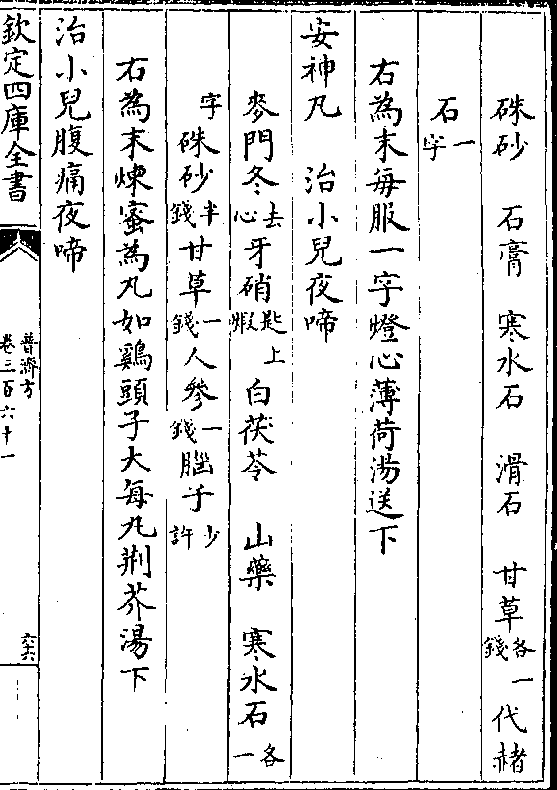 硃砂 石膏 寒水石 滑石 甘草各一錢 代赭
石一字
右為末每服一字燈心薄荷湯送下
安神丸 治小兒夜啼
麥門冬去心 牙硝匙上煆 白茯苓 山藥 寒水石各一
字 硃砂半錢 甘草一錢 人參一錢 腦子少許
右為末煉蜜為丸如鷄頭子大每丸荆芥湯下
治小兒腹痛夜啼
欽定四庫全書
普濟方
卷三百六十一
六六